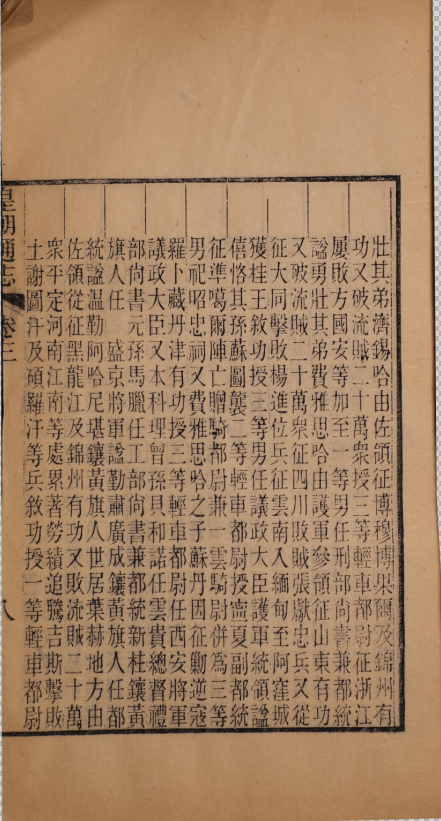 壯其弟濟錫哈由佐領征博穆博果爾及錦州有
功又破流賊二十萬衆授三等輕車都尉征浙江
屢敗方國安等加至一等男任刑部尚書兼都統
諡勇壯其弟費雅思哈由護軍參領征山東有功
又破流賊二十萬衆征四川敗賊張獻忠兵又從
征大同擊敗楊進位兵征雲南入緬甸至阿窪城
獲桂王敘功授三等男任議政大臣護軍統領諡
僖恪其孫蘇圖襲二等輕車都尉授寧夏副都統
征準噶爾陣亡贈騎都尉兼一雲騎尉併爲三等
男祀昭忠祠又費雅思哈之子蘇丹因征勦逆寇
羅卜藏丹津有功授三等輕車都尉任西安將軍
議政大臣又本科理曾孫貝和諾任雲貴總督禮
部尚書元孫馬臘任工部尚書兼都統新柱鑲黃
旗人任 盛京將軍諡勤肅廣成鑲黃旗人任都
統諡温勒阿哈尼堪鑲黃旗人世居葉赫地方由
佐領從征黑龍江及錦州有功又敗流賊二十萬
衆平定河南江南等處累著勞績追騰吉斯擊敗
土謝圖汗及碩羅汗等兵敘功授一等輕車都尉
皇朝通志 卷三 八